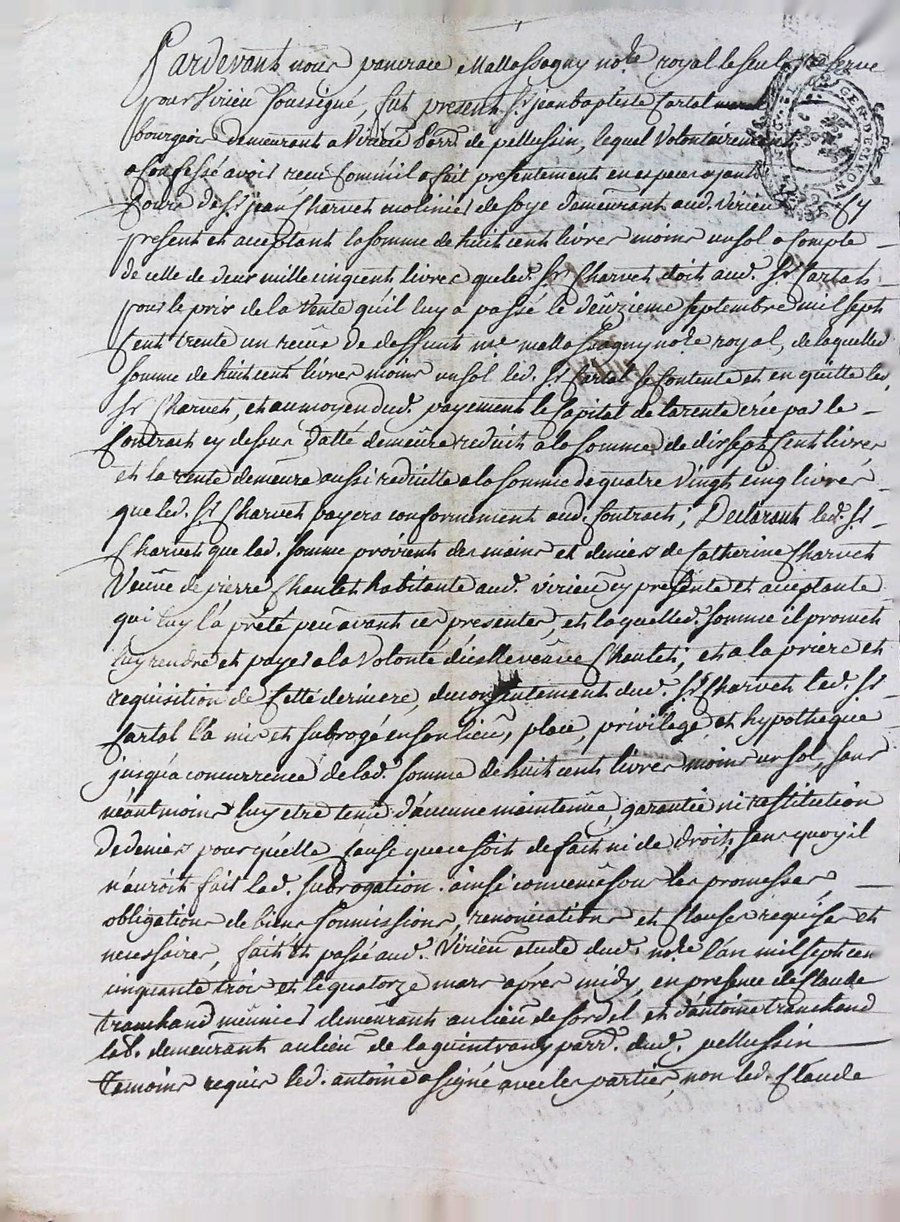 Pardevant nous pancrace Mattassagny no.re royal le seul reserve
pour Virieu soussigné, fut present Sr. jean baptiste Cartal
bourgeois demeurant a Virieu parr. de pellussin, lequel Volontairement
a Confessé avoir receu Comme il a fait presentement en especes ayant
Cours de Sr. jean Charvet molinier de soye demeurant aud. Virieu Cy
present et acceptant la somme de huit cent livres moins un sol a Compte
de celle de deux mille cinq cent livres que led. Sr. Charvet doit aud. Sr. Cartal
pour le pris de la Vente qu'il luy a passé le deûzieme septembre mil sept
Cent trente un receûe de deffunt me. mattassagny no.re royal, de laquelle
somme de huit cent livres moins un sol led. Sr. Cartal se Contente et en quitte led.
Sr. Charvet, et au moyen dud. payement le Capital de la rente crée par le
Contract cy dessus datté demeûre reduit a la somme de dix sept Cent livres
et la rente demeûre aussi reduitte a la somme de quatre Vingt cinq livres
que led. Sr. Charvet payera conformement aud. Contract; Declarant led. Sr.
Charvet que lad. somme provient des mains et deniers de Catherine Charvet
Veûve de pierre Chantet habitante aud. Virieu cy presente et acceptante
qui luy l'a prêté peu avant ces presentes, et laquelle d. somme il promet
luy rendre et payer a la Volonté d'icelle veûve Chantet; et a la priere et
requisition de Cette derniere, du consentement dud. Sr. Charvet led. Sr.
Cartal l'a mis et subrogé en son lieu, place, privilege et hypotheque
jusqu'a concurrence de lad. somme de huit cent livres moins un sol, sans
néantmoins luy etre tenû d'aucune maintenûe, garantie ni restitution
de deniers pour quelle Cause que ce soit de fait ni de droit, sans quoy il
n'auroit fait lad. subrogation. ainsi convenû sous les promesses
obligations de biens soumissions, renonciations et Clauses requises et
necessaires, fait et passé aud. Virieu etude dud. no.re l'an mil sept cen
cinquante trois et le quatorze mars aprés midy, en presence de Claude
tranchand meûnier demeurant au lieu de Sordel et d'antoine tranchand
lab. demeurant au lieu de la quintrany parr. dud. pellussin
temoins requis led. antoine a signé avec les parties, non led. Claude